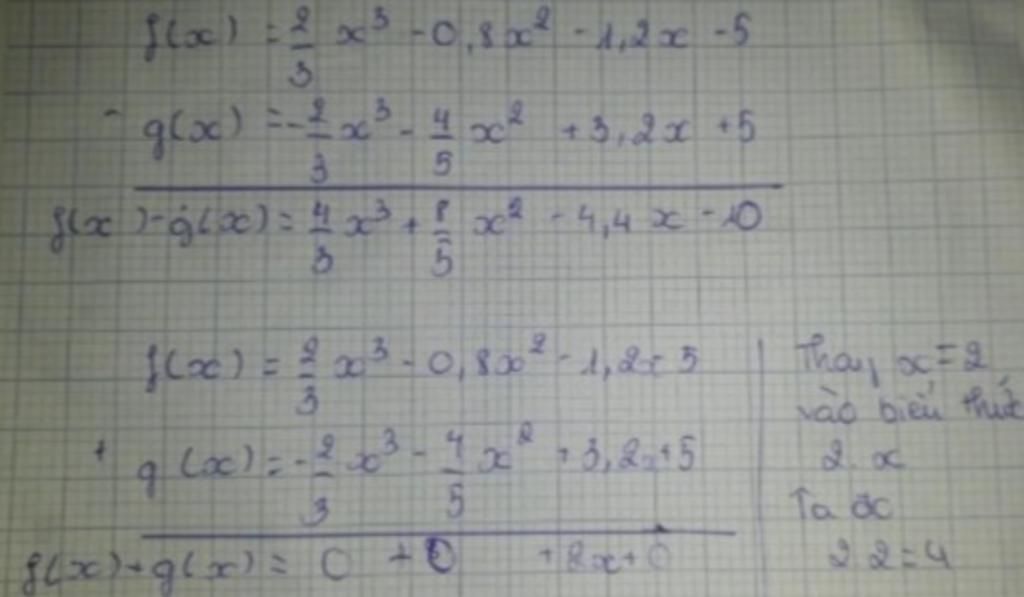 f(x) = 2/3 x³ - 0,8x² - 1,2x - 5
- g(x) = -2/3 x³ - 4/5 x² + 3,2x + 5
f(x) - g(x) = 4/3 x³ + 8/5 x² - 4,4x - 10
f(x) = 2/3 x³ - 0,8x² - 1,2x 5
+ g(x) = -2/3 x³ - 4/5 x² + 3,2x + 5
f(x) + g(x) = 0 + 0 + 2x + 0
Thay x = 2
vào biểu thức
2 x
Ta có
2 2 = 4